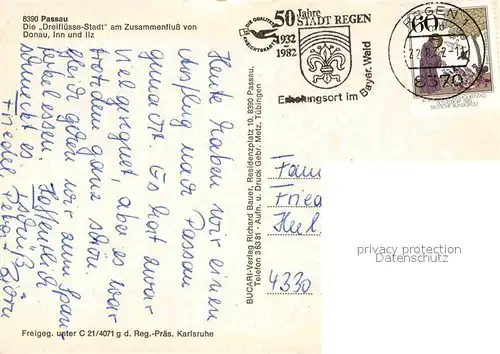 8390 Passau
Die „Dreiflüsse-Stadt" am Zusammenfluß von
Donau, Inn und Ilz
Heute haben wir einen
Ausflug nach Passau
gemacht. Es hat zwar
viel geregnet, aber es war
trotzdem ganz schön.
gehen wir zum
essen. Hoffentlich
schmeckt es
Freigeg. unter C 21/4071 g d. Reg.-Präs. Karlsruhe
BUCARI-Verlag Richard Bauer, Residenzplatz 10, 8390 Passau,
Telefon 3 63 81 - Aufn. u. Druck Gebr. Metz, Tübingen
50 Jahre
STADT REGEN
1932
1982
Erholungsort im Bayer. Wald
REGEN 1
8370
60
DEUTSCHE BUNDESPOST
Fam
4330
privacy protection
Datenschutz